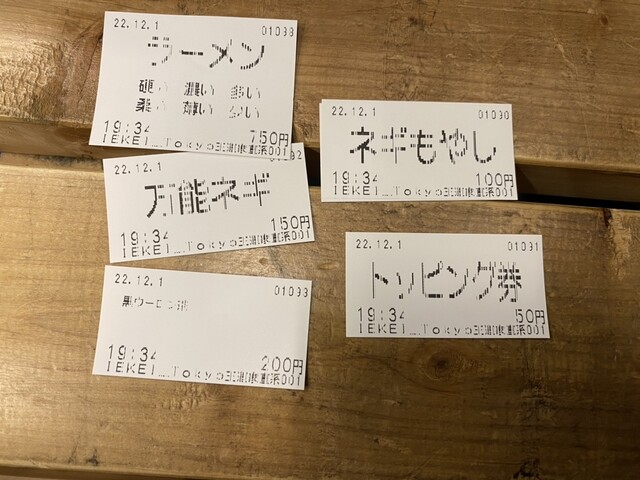 22.12.1 01088
ラーメン
硬い 濃い 多い
柔い 薄い 少い
19:34 750円
IEKEI Tokyo 001
22.12.1 01090
ネギもやし
19:34 100円
IEKEI Tokyo 001
22.12.1
万能ネギ
19:34 150円
IEKEI Tokyo 001
22.12.1 01091
トッピング券
19:34 50円
IEKEI Tokyo 001
22.12.1 01093
黒ウーロン茶
19:34 200円
IEKEI Tokyo 001